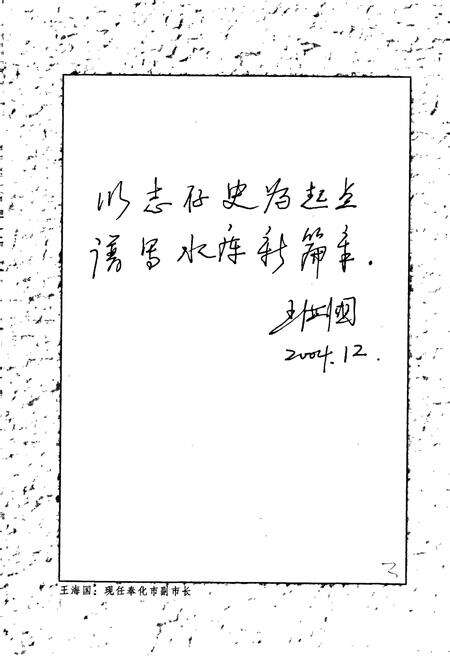 以志存史为起点
谱写水库新篇章.
王海国
2004.12.
王海国：现任奉化市副市长